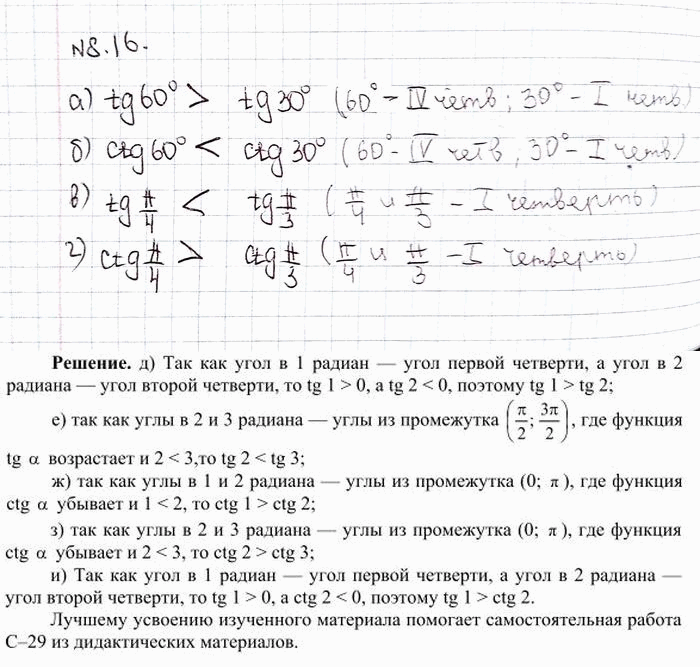 N8.16.
а) tg60° > tg30° (60° – IV четв; 30° – I четв)
б) ctg60° < ctg30° (60° – IV четв, 30° – I четв)
в) tg π/4 < tg π/3 (π/4 и π/3 – I четверть)
г) ctg π/4 > ctg π/3 (π/4 и π/3 – I четверть)
Решение. д) Так как угол в 1 радиан — угол первой четверти, а угол в 2
радиана — угол второй четверти, то tg 1 > 0, а tg 2 < 0, поэтому tg 1 > tg 2;
е) так как углы в 2 и 3 радиана — углы из промежутка (π/2; 3π/2), где функция
tg α возрастает и 2 < 3,то tg 2 < tg 3;
ж) так как углы в 1 и 2 радиана — углы из промежутка (0; π), где функция
ctg α убывает и 1 < 2, то ctg 1 > ctg 2;
з) так как углы в 2 и 3 радиана — углы из промежутка (0; π), где функция
ctg α убывает и 2 < 3, то ctg 2 > ctg 3;
и) Так как угол в 1 радиан — угол первой четверти, а угол в 2 радиана —
угол второй четверти, то tg 1 > 0, а ctg 2 < 0, поэтому tg 1 > ctg 2.
Лучшему усвоению изученного материала помогает самостоятельная работа
С–29 из дидактических материалов.